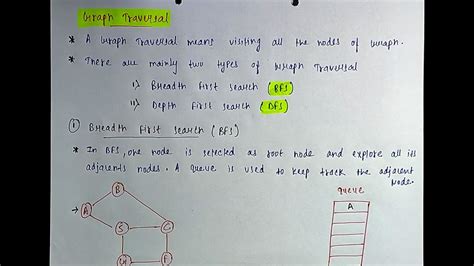 Graph Traversal
* A Graph Traversal means visiting all the nodes of Graph.
* There are mainly two types of Graph Traversal
i) Breadth First Search (BFS)
ii) Depth First Search (DFS)
① Breadth First Search (BFS)
* In BFS, one node is selected as root node and explore all its
adjacents nodes. A queue is used to keep track the adjacent
Node.
queue
B
A
A
S
G
H
F